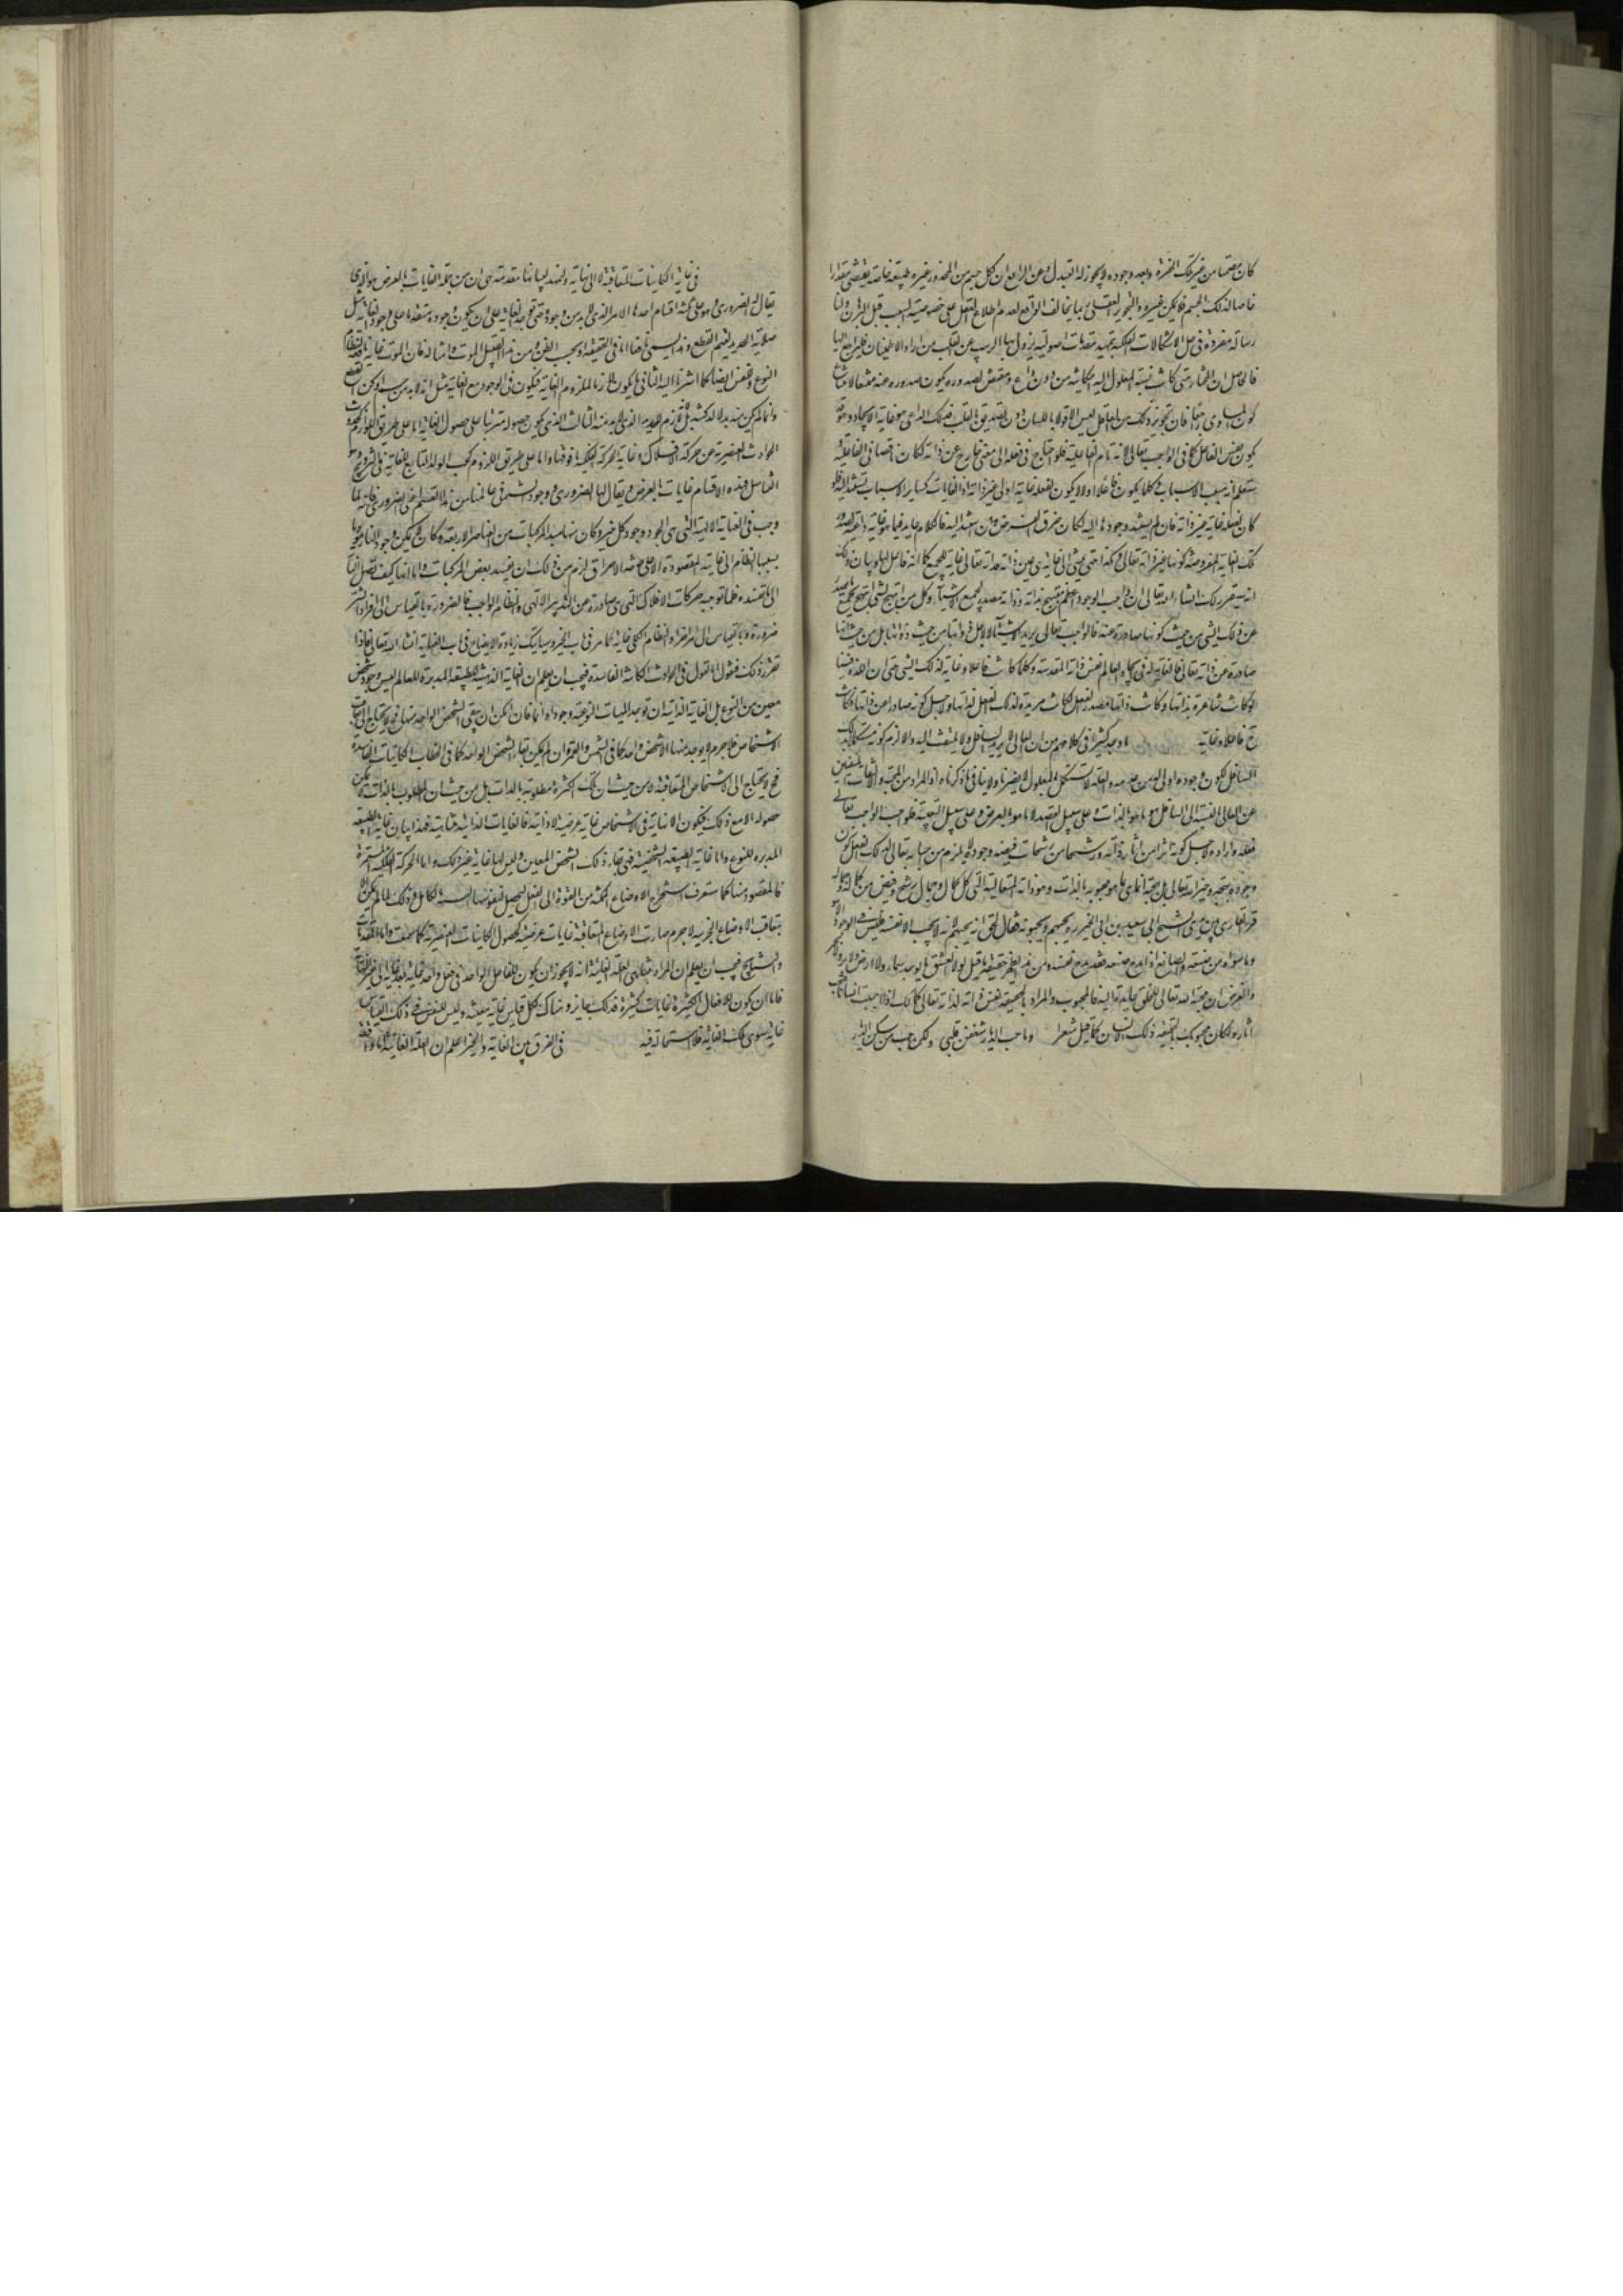 كان مصمتا من غير تلك النقرة وبعد وجوده لا يجوز له التبدل وعن الرابع ان كل جسم من المحدد وغيره طبيعة خاصة يقتضي مقدارا
خاصا لذلك الجسم فلا يمكن غيره والتجويز العقلي ربما يخالف الواقع لعدم اطلاع العقل على خصوصية السبب قبل البرهان ولنا
رسالة مفردة في حل الاشكالات الفلكية بتمهيد مقدمات اصولية يزول بها الريب عن القلب من اراد الاطمينان فليراجع اليها
فالحاصل ان المختار متى كانت نسبة المعلول اليه امكانية من دون داع ومقتض لصدوره يكون صدوره عنه ممتنعا لامتناع
كون المساوي راجحا فان تجويز ذلك من العاقل ليس الا قولا باللسان دون التصديق بالقلب فذلك الداعي هو غاية الايجاد وهو قد
يكون نفس الفاعل كما في الواجب تعالى لانه تام الفاعلية فلو احتاج في فعله الى معنى خارج عن ذاته لكان ناقصا في الفاعلية و
ستعلم انه مسبب الاسباب وكلما يكون فاعلا اولا لا يكون لفعله غاية اولى غير ذاته اذ الغايات كسائر الاسباب تستند اليه فلو
كان لفعله غاية غير ذاته فان لم يستند وجودها اليه لكان خرق الفرض وان استند اليه فالكلام عايد فيما هو غاية داعية لصدور
تلك الغاية المفروضة كونها غير ذاته تعالى وهكذا حتى ينتهي الى غاية هي عين ذاته فذاته تعالى غاية للجميع كما انه فاعل لها وبيان ذلك
انه سيقرر لك انشاء الله تعالى ان واجب الوجود اعظم مبتهج بذاته وذاته مصدر لجميع الاشياء وكل من ابتهج بشيء ابتهج بجميع ما يصدر
عن ذلك الشيء من حيث كونها صادرة عنه فالواجب تعالى يريد الاشياء لا لاجل ذواتها من حيث ذواتها بل من حيث انها
صادرة عن ذاته تعالى فالغاية له في ايجاد العالم نفس ذاته المقدسة وكلما كانت فاعلا وغاية لذلك الشيء حتى ان اللذة فينا
لو كانت شاعرة بذاتها وكانت ذاتها مصدر الفعل لكانت مريدة لذلك الفعل لذاتها ولاجل كونه صادرا عن ذاتها وكانت
ح فاعلا وغاية وما وجد كثيرا في كلامهم من ان العالي لا يريد السافل ولا يلتفت اليه والا لزم كونه مستكملا بذلك
السافل لكون وجوده اولى له من عدمه والعلة لا تستكمل بالمعلول لا يضرنا ولا ينافي ما ذكرناه اذ المراد من المحبة والالتفات المنفيين
عن العالي بالنسبة الى السافل هو ما هو بالذات وعلى سبيل القصد لا ما هو بالعرض وعلى سبيل التبعية فلو احب الواجب تعالى
فعله واراده لاجل كونه اثرا من آثار ذاته ورشحا من رشحات فيضه وجوده لا يلزم من احبابه تعالى لذلك الفعل كون
وجوده بهجة وخيرا له تعالى بل بهجته انما هي بما هو محبوبه بالذات وهو ذاته المتعالية التي كل كمال وجمال رشح وفيض من كماله وجماله
قرء القاري بين يدي الشيخ ابي سعيد بن ابي الخير ره يحبهم ويحبونه فقال الحق انه يحبهم لانه لا يحب الا نفسه فليس في الوجود الا هو
وما سواه من صنعه والصانع اذا مدح صنعه فقد مدح نفسه ومن هذا يظهر حقيقة ما قيل لولا العشق ما يوجد سماء ولا ارض ولا بر ولا بحر
والغرض ان محبة الله تعالى للخلق عايدة اليه فالمحبوب والمراد بالحقيقة نفس ذاته لذاته تعالى كما انك اذا احببت انسانا فتحب
آثاره لكان محبوبك بالحقيقة ذلك الانسان كما قيل شعرا وما حب الديار شغفن قلبي ولكن حب من سكن الديار
في غاية الكاينات المتعاقبة لا الى نهاية ولنمهد لبيانها مقدمة هي ان من جملة الغايات بالعرض هو الذي
يقال له الضروري وهو على ثلثة اقسام احدها الامر الذي لا بد من وجوده حتى توجد الغاية على ان يكون وجوده متقدما على وجود الغاية مثل
صلابة الحديد ليتم القطع وهذا يسمى نافعا اما في الحقيقة او بحسب الظن ومن هذا القبيل الموت وامثاله فان الموت غاية نافعة لنظام
النوع وللنفس ايضا كما اشرنا اليه الثاني ما يكون لازما لملزوم الغاية فيكون في الوجود مع الغاية مثل انه لا بد من جسم ادكن للقطع
وانما لم يكن منه بد لا لدكنته بل لانه لازم للحديد الذي لا بد منه الثالث الذي يكون حصوله مترتبا على حصول الغاية اما على طريق اللزوم كحدوث
الحوادث العنصرية عن حركة الافلاك وغاية الحركة الفلكية ما فوقها واما لا على طريق اللزوم كحب الولد التابع للغاية في التزويج وهو
التناسل فهذه الاقسام غايات بالعرض ويقال لها الضروري ووجود الشر في عالمنا من هذا القسم اعني الضروري فانه لما
وجب في العناية الالهية التي هي الجود وجود كل خير وكان منها مبدأ المركبات من العناصر الاربعة وكان لا يمكن وجود النار مؤديا
بسببها النظام الى غايته المقصودة الا على صفة الاحراق لزم من ذلك ان يفسد بعض المركبات واما انها كيف تصل النار
الى ما تفسده فلما توجبه حركات الافلاك التي هي صادرة عن التدبير الالهي والنظام الواجب فالضرورة بالقياس الى افراد الشر
ضرورة وبالقياس الى امر آخر والنظام الكلي غاية كما مر في باب الخير وسيأتيك زيادة الايضاح في باب العناية انشاء الله تعالى فاذا
تقرر ذلك فنقول اما القول في الحوادث الكائنة الفاسدة فيجب ان يعلم ان الغاية الذاتية للطبيعة المدبرة للعالم ليس وجود شخص
معين من النوع بل الغاية الذاتية ان توجد الماهيات النوعية وجودا دائما فان امكن ان يبقى الشخص الواحد منها فلا يحتاج الى تعاقب
الاشخاص فلا جرم لا يوجد منها الا شخص واحد كما في الشمس والقمر وان لم يكن بقاء الشخص الواحد كما في الكاينات الفاسدة
فح يحتاج الى الاشخاص المتعاقبة لا من حيث ان تلك الكثرة مطلوبة بالذات بل من حيث ان المطلوب بالذات لا يمكن
حصوله الا مع ذلك فيكون اللانهاية في الاشخاص غاية عرضية لا ذاتية فالغايات الذاتية متناهية فهذا بيان غاية الطبيعة
المدبرة للنوع واما غاية الطبيعة الشخصية فهي بقاء ذلك الشخص المعين وليس لها غاية غير ذلك واما الحركة الفلكية المستمرة
فالمقصود منها كما ستعرف استخراج الاوضاع الممكنة من القوة الى الفعل ليحصل لنفوسها التشبه بالكامل وذلك لما لم يمكن الا
بتعاقب الاوضاع الجزئية لا جرم صارت الاوضاع المتعاقبة غايات عرضية كحصول الكاينات العنصرية كما سمعت واما المقدمات
والنتايج فيجب ان يعلم ان المراد بتناهي العلة الغائية انه لا يجوز ان يكون للفاعل الواحد في فعل واحد غاية بعد غاية الى غير النهاية
فاما ان يكون للافعال الكثيرة غايات كثيرة فذلك جايز وهناك لكل قياس غاية معينة وليس للنفس في ذلك القياس
غاية سوى تلك الغاية فلا استحالة فيه في الفرق بين الغاية والخير اعلم ان العلة الغائية اما واقعة